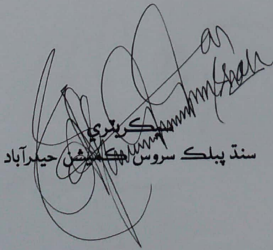 سيڪريٽري
سنڌ پبلڪ سروس ڪميشن حيدرآباد